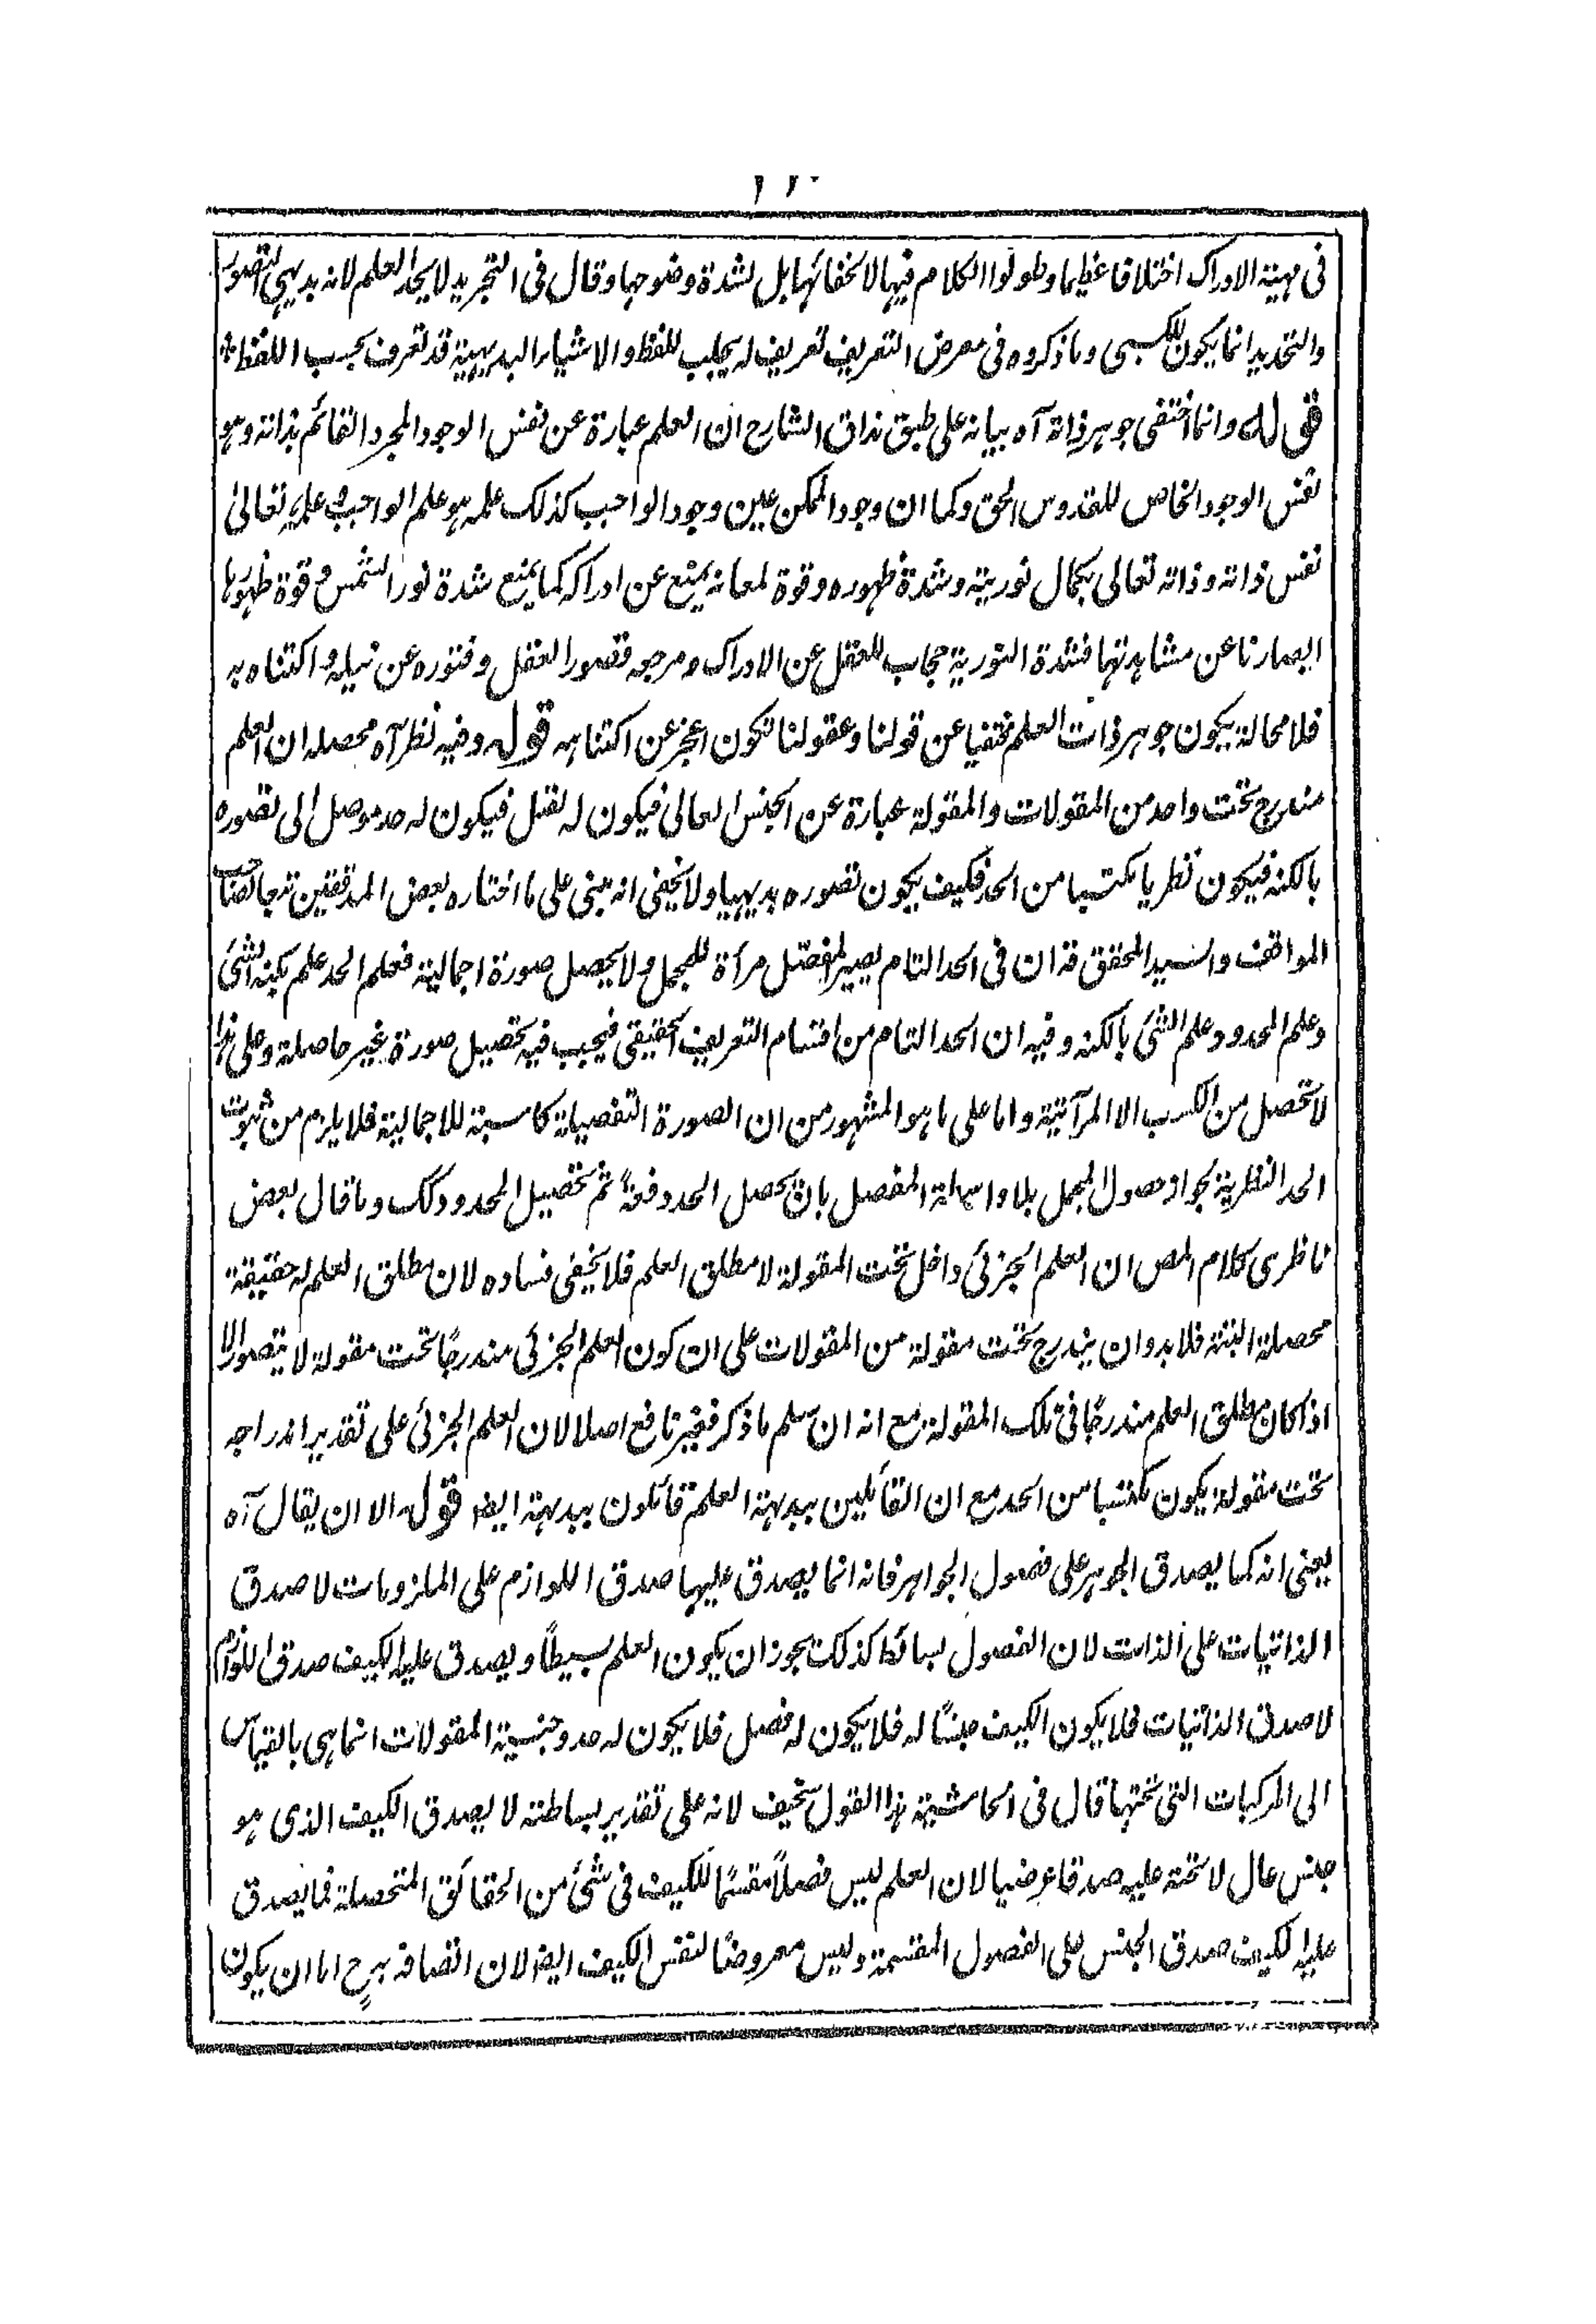 فى مهية الادراك اختلافا عظيما وطولوا الكلام فيها لا لخفائها بل لشدة وضوحها وقال فى التجريد لا يحد العلم لانه بديهى التصور
والتحديد انما يكون للكسبى وما ذكروه فى معرض التعريف تعريف له بحسب اللفظ والاشياء البديهية قد تعرف بحسب اللفظ
قوله وانما اختفى جوهر ذاته آه بيانه على طبق مذاق الشارح ان العلم عبارة عن نفس الوجود المجرد القائم بذاته وهو
نفس الوجود الخاص للقدوس الحق وكما ان وجود الممكن عين وجود الواجب كذلك علمه هو علم الواجب وعلمه تعالى
نفس ذاته وذاته تعالى بكمال نوريته وشدة ظهوره وقوة لمعانه يمنع عن ادراكه كما يمنع شدة نور الشمس وقوة ظهورها
ابصارنا عن مشاهدتها فشدة النورية حجاب للعقل عن الادراك ومرجعه قصور العقل وفتوره عن نيله واكتناهه
فلا محالة يكون جوهر ذات العلم مختفيا عن قولنا وعقولنا تكون اعجز عن اكتناهه قوله وفيه نظر آه محصله ان العلم
مندرج تحت واحد من المقولات والمقولة عبارة عن الجنس العالى فيكون له فصل فيكون له حد موصل الى تصوره
بالكنه فيكون نظريا مكتسبا من الحد فكيف يكون تصوره بديهيا ولا يخفى انه مبنى على ما اختاره بعض المدققين تبعا لصاحب
المواقف والسيد المحقق قه ان فى الحد التام يصير المفصل مرآة للمجمل ولا يحصل صورة اجمالية فعلم الحد علم بكنه الشئ
وعلم المحدود وعلم الشئ بالكنه وفيه ان الحد التام من اقسام التعريف الحقيقى فيجب فيه تحصيل صورة غير حاصلة وعلى هذا
لا تحصل من الكسب الا المرآتية واما على ما هو المشهور من ان الصورة التفصيلية كاسبة للاجمالية فلا يلزم من ثبوت
الحد النظرية لجواز حصول المجمل بلا واسطة المفصل بان يحصل الحد دفعةً ثم تحصيل المحدود لك وما قال بعض
ناظرى كلام المص ان العلم الجزئى داخل تحت المقولة لا مطلق العلم فلا يخفى فساده لان مطلق العلم له حقيقة
محصلة البتة فلا بد وان يندرج تحت مقولة من المقولات على ان كون العلم الجزئى مندرجًا تحت مقولة لا يتصور الا
اذا كان مطلق العلم مندرجًا فى تلك المقولة مع انه ان سلم ما ذكر فغير نافع اصلا لان العلم الجزئى على تقدير اندراجه
تحت مقولة يكون مكتسبا من الحد مع ان القائلين ببديهة العلم قائلون ببديهته ايضا قوله الا ان يقال آه
يعنى انه كما يصدق الجوهر على فصول الجواهر فانه انما يصدق عليها صدق اللوازم على الملزومات لا صدق
الذاتيات على الذات لان الفصول بسائط كذلك يجوز ان يكون العلم بسيطًا ويصدق عليه الكيف صدق اللوازم
لا صدق الذاتيات فلا يكون الكيف جنسًا له فلا يكون له فصل فلا يكون له حد وجنسية المقولات انما هى بالقياس
الى المركبات التى تحتها قال فى الحاشية هذا القول سخيف لانه على تقدير بساطته لا يصدق الكيف الذى هو
جنس عال لا تحته عليه صدقا عرضيا لان العلم ليس فصلاً مقسمًا للكيف فى شئ من الحقائق المتحصلة فما يصدق
عليه الكيف صدق الجنس على الفصول المقسمة وليس معروضًا لنفس الكيف ايضا لان اتصافه به ح اما ان يكون